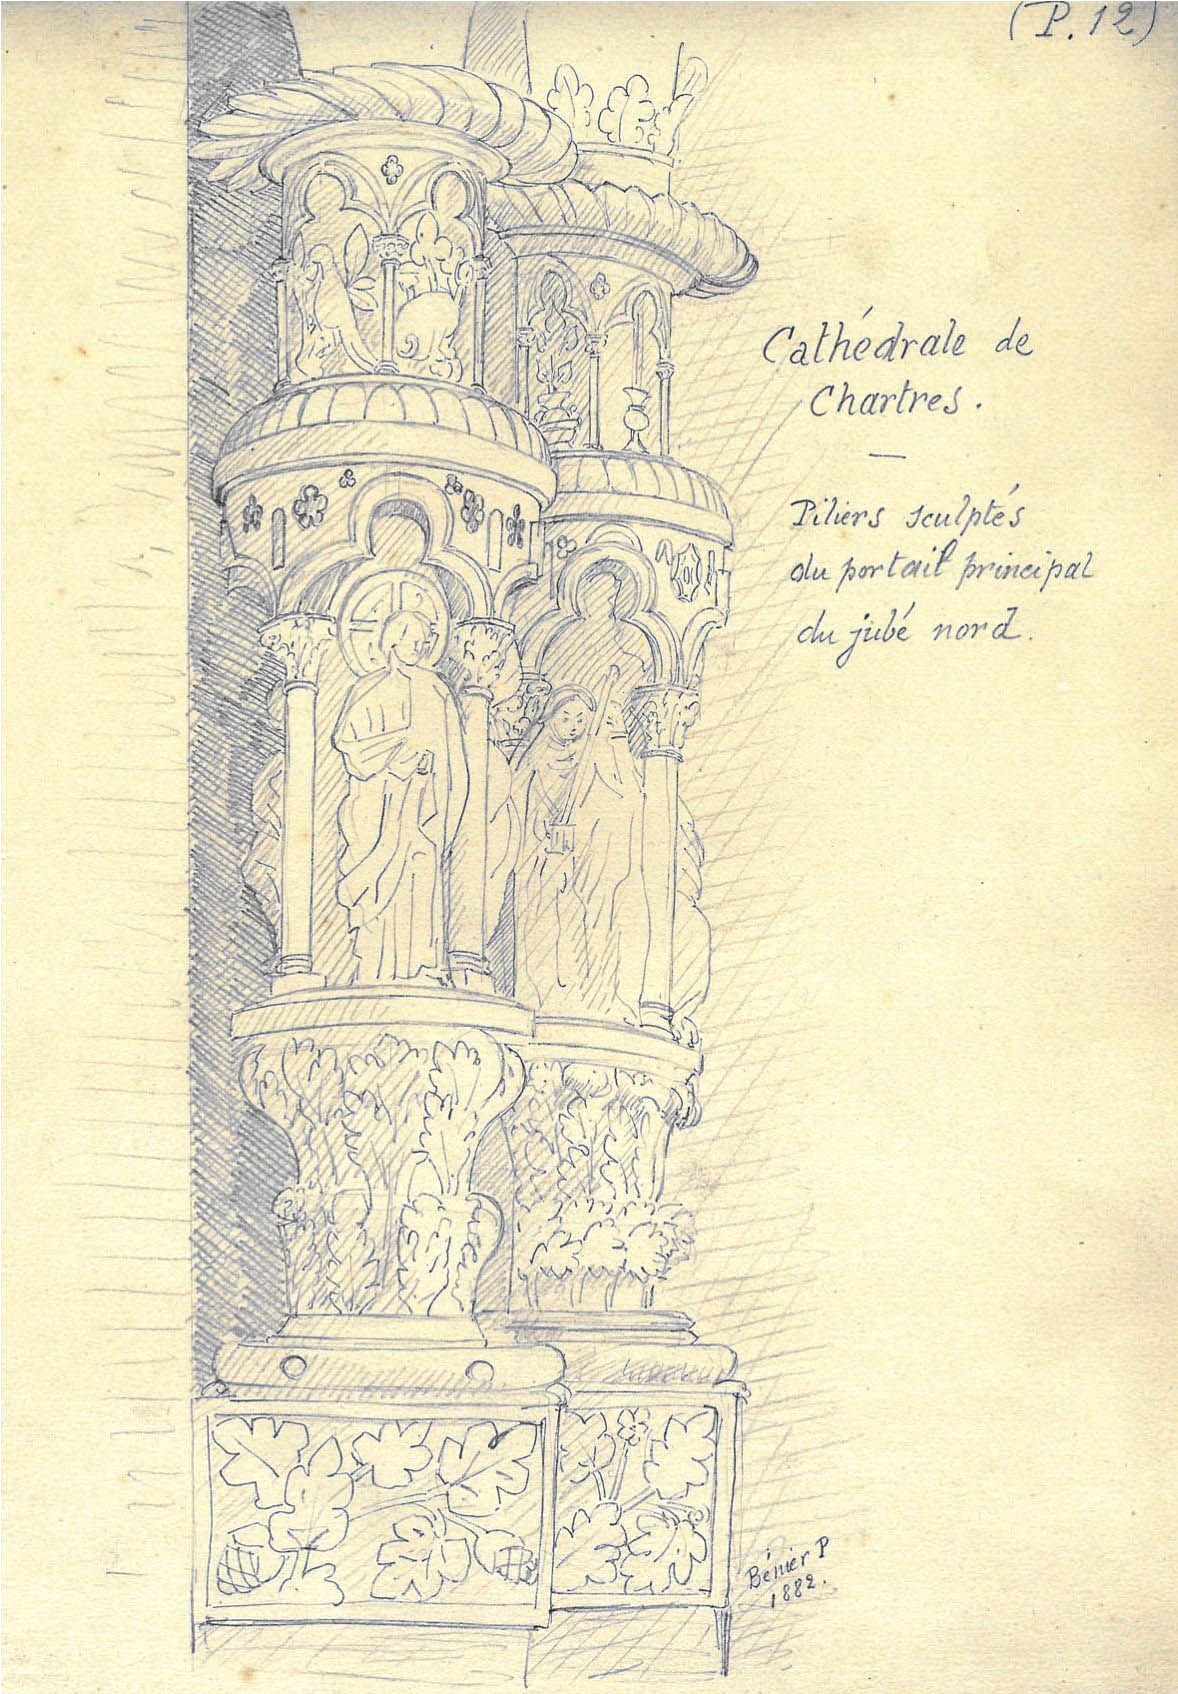 (P. 12)
Cathédrale de
Chartres.
Piliers sculptés
du portail principal
du jubé nord.
Bénier P
1882.